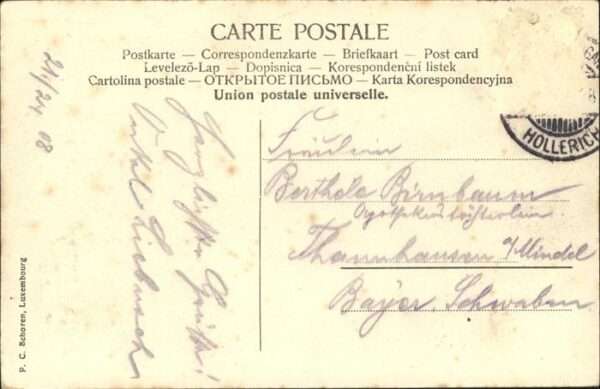 CARTE POSTALE
Postkarte — Correspondenzkarte — Briefkaart — Post card
Levelező-Lap — Dopisnica — Korespondenční listek
Cartolina postale — ОТКРЫТОЕ ПИСЬМО — Karta Korespondencyjna
Union postale universelle.
HOLLERICH
Fräulein
Berthola Birnbaum
Apothekerstöchterlein
Thannhausen a/Mindel
Bayer. Schwaben
Onkel
P. C. Schoren, Luxembourg